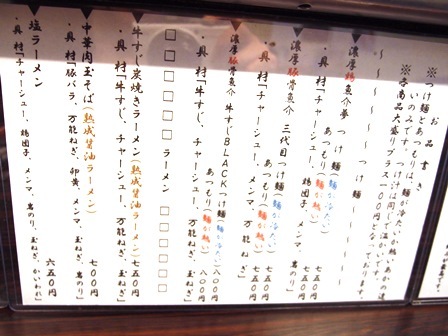 お品書き
※つけ麺とあつもりは、麺が冷たいか熱いかの違
いのみです。つけ汁は同じで温かいです。
※各商品大盛りプラス100円となっております。
～～～～つけ麺～～～～
▼濃厚鶏魚介夢 つけ麺(麺が冷たい) 七五〇円
あつもり(麺が熱い) 七五〇円
・具材「チャーシュー、鶏団子、メンマ、岩のり」
▼濃厚豚骨魚介 三代目つけ麺(麺が冷たい) 七五〇円
あつもり(麺が熱い) 七五〇円
・具材「チャーシュー、
▼濃厚豚骨魚介 牛すじBLACKつけ麺(麺が冷たい) 八〇〇円
あつもり(麺が熱い) 八〇〇円
・具材「牛すじ、チャーシュー、万能ねぎ、玉ねぎ」
□□□□□ラーメン□□□□□
▼牛すじ炭焼きラーメン(熟成醤油ラーメン) 七五〇円
・具材「牛すじ、チャーシュー、万能ねぎ、玉ねぎ」
▼中華肉玉そば(熟成醤油ラーメン) 七〇〇円
・具材「豚バラ、万能ねぎ、卵黄、メンマ、岩のり」
▼塩ラーメン 六五〇円
・具材「チャーシュー、鶏団子、メンマ、岩のり、玉ねぎ、かいわれ」